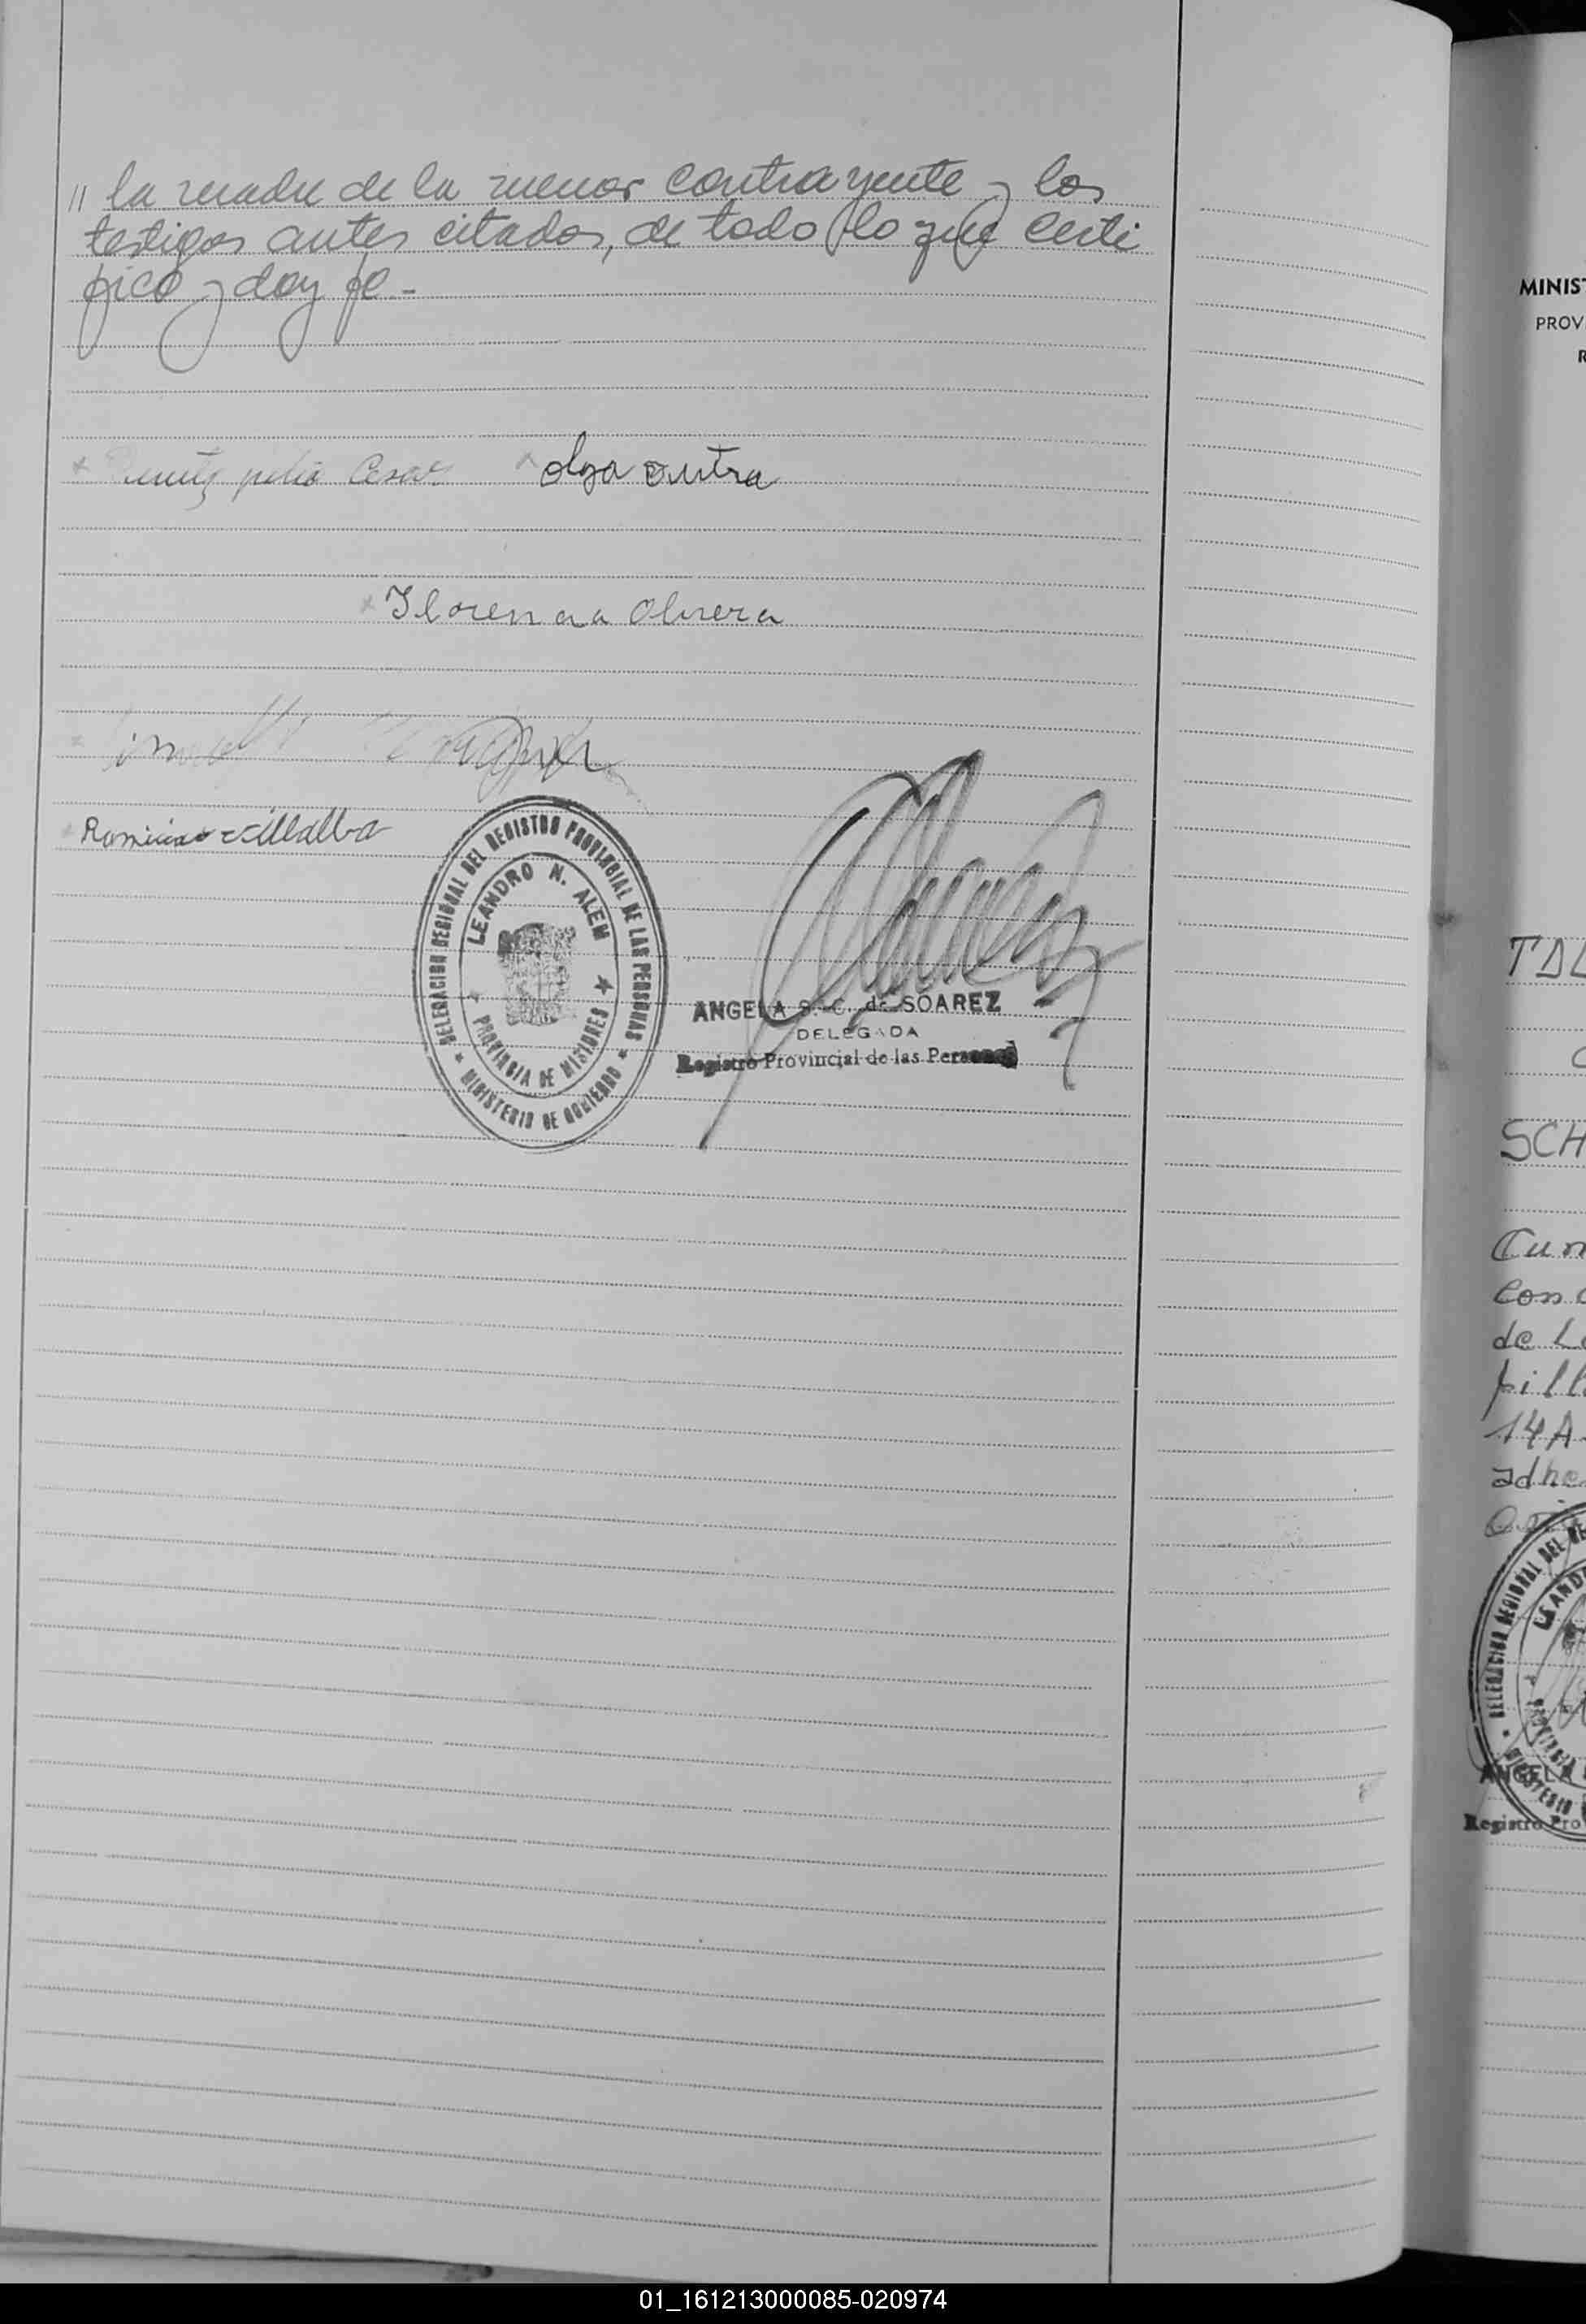 " la madre de la menor contrayente y los
testigos antes citados, de todo lo que certi
fico y doy fe.-
x Cesar x olga
x Olivera
x
x Villalba
DELEGACION REGIONAL DEL REGISTRO PROVINCIAL DE LAS PERSONAS
LEANDRO N. ALEM
PROVINCIA DE MISIONES
* MINISTERIO DE GOBIERNO *
ANGELA S. C. de SOAREZ
DELEGADA
Registro Provincial de las Personas
MINIST
PROV
R
TAL
SCH
Cum
Con
de L
pill
14 A
adhe
DELEGACION REGIONAL DEL RE
LEAND
PROVINCIA
MINISTERIO
ANGELA
Registro Pro
01_161213000085-020974